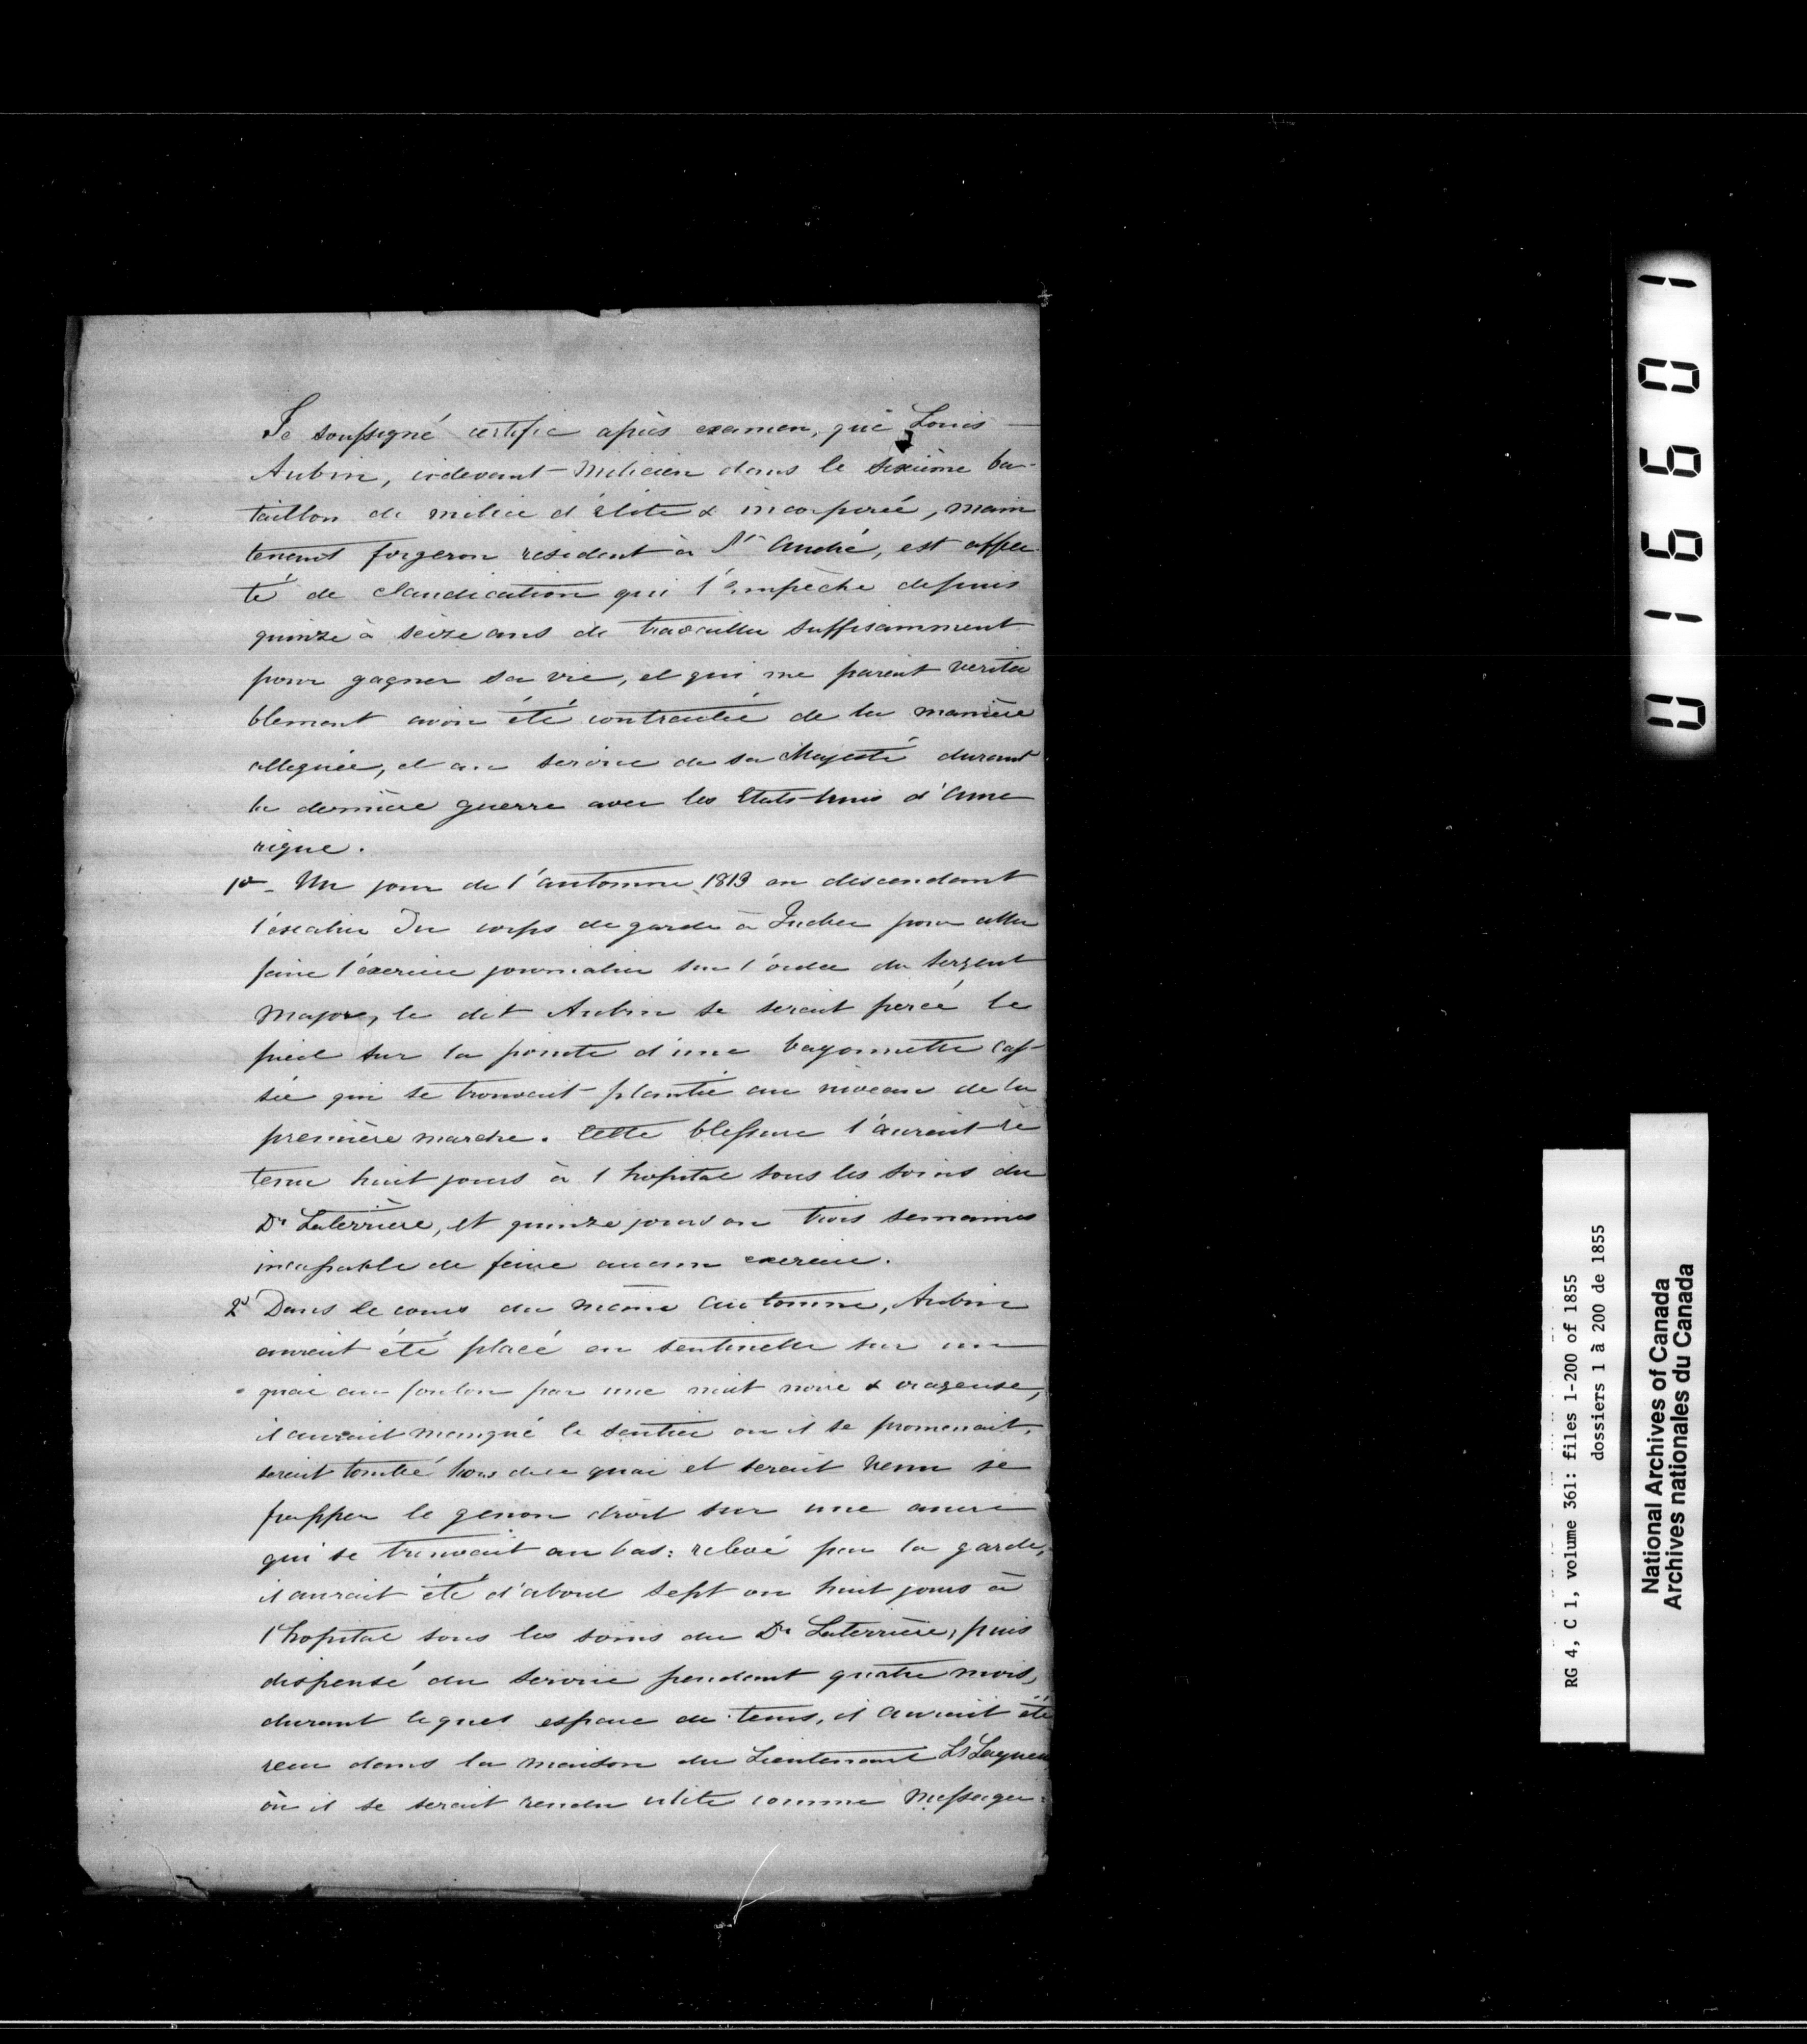 Je soussigné certifie après examen, que Louis
Aubin, cidevant Milicien dans le sixième ba-
taillon de milice d'élite & incorporée, main
tenant forgeron résident à St André, est affec-
té de claudication qui l'empêche depuis
quinze à seize ans de travailler suffisamment
pour gagner sa vie, et qui me parait verita
blement avoir été contractée de la manière
alleguée, et au service de sa Majesté durant
la dernière guerre avec les Etats-Unis d'Ame
rique.
1o- Un jour de l'automne 1813 en descendant
l'escalier du corps de garde à Quebec pour aller
faire l'exercice journalier sur l'ordre du Sergent
Major, le dit Aubin se serait percé le
pied sur la pointe d'une bayonnette cas-
sée qui se trouvait plantée au niveau de la
première marche. Cette blessure l'aurait re
tenu huit jours à l'hopital sous les soins du
Dr Laterrière, et quinze jours ou trois semaines
incapable de faire aucun exercice.
2o Dans le cours du même automne, Aubin
aurait été placé en sentinelle sur un
quai au foulon par une nuit noire & orageuse,
il aurait manqué le sentier où il se promenait,
serait tombé hors du quai et serait venu se
frapper le genou droit sur une ancre
qui se trouvait au bas: relevé par la garde,
il aurait été d'abord sept ou huit jours à
l'hopital sous les soins du Dr Laterrière, puis
dispensé du service pendant quatre mois,
durant lequel espace de tems, il aurait été
reçu dans la maison du Lieutenant Ls
où il se serait rendu utile comme Messager:
01660 1
RG 4, C 1, volume 361: files 1-200 of 1855
dossiers 1 à 200 de 1855
National Archives of Canada
Archives nationales du Canada